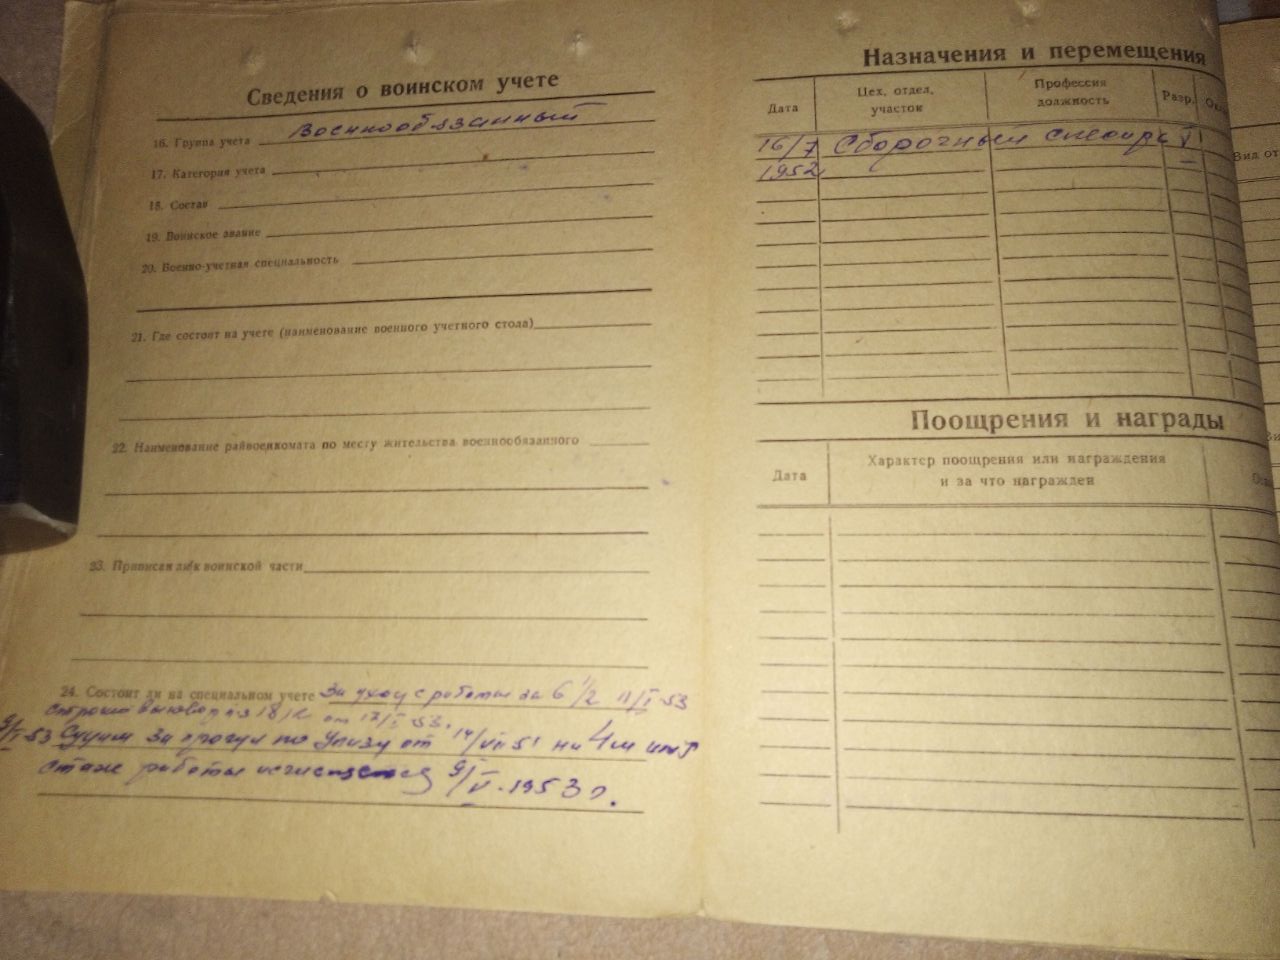 Сведения о воинском учете
16. Группа учета Военнообязанный
17. Категория учета
18. Состав
19. Воинское звание
20. Военно-учетная специальность
21. Где состоит на учете (наименование военного учетного стола)
22. Наименование райвоенкомата по месту жительства военнообязанного
23. Приписан ли к воинской части
24. Состоит ли на специальном учете За уход с работы за 6 1/2 11/I-53
от 17/I-53.
9/I-53 Судим за прогул по Указу от 14/VII 51 на 4 м
стаж работы исчисляется 9/V-1953 г.
Назначения и перемещения
Дата
Цех, отдел, участок
Профессия должность
Разр.
16/7 1952 Сборочный слесарь V
Поощрения и награды
Дата
Характер поощрения или награждения
и за что награжден
Вид от